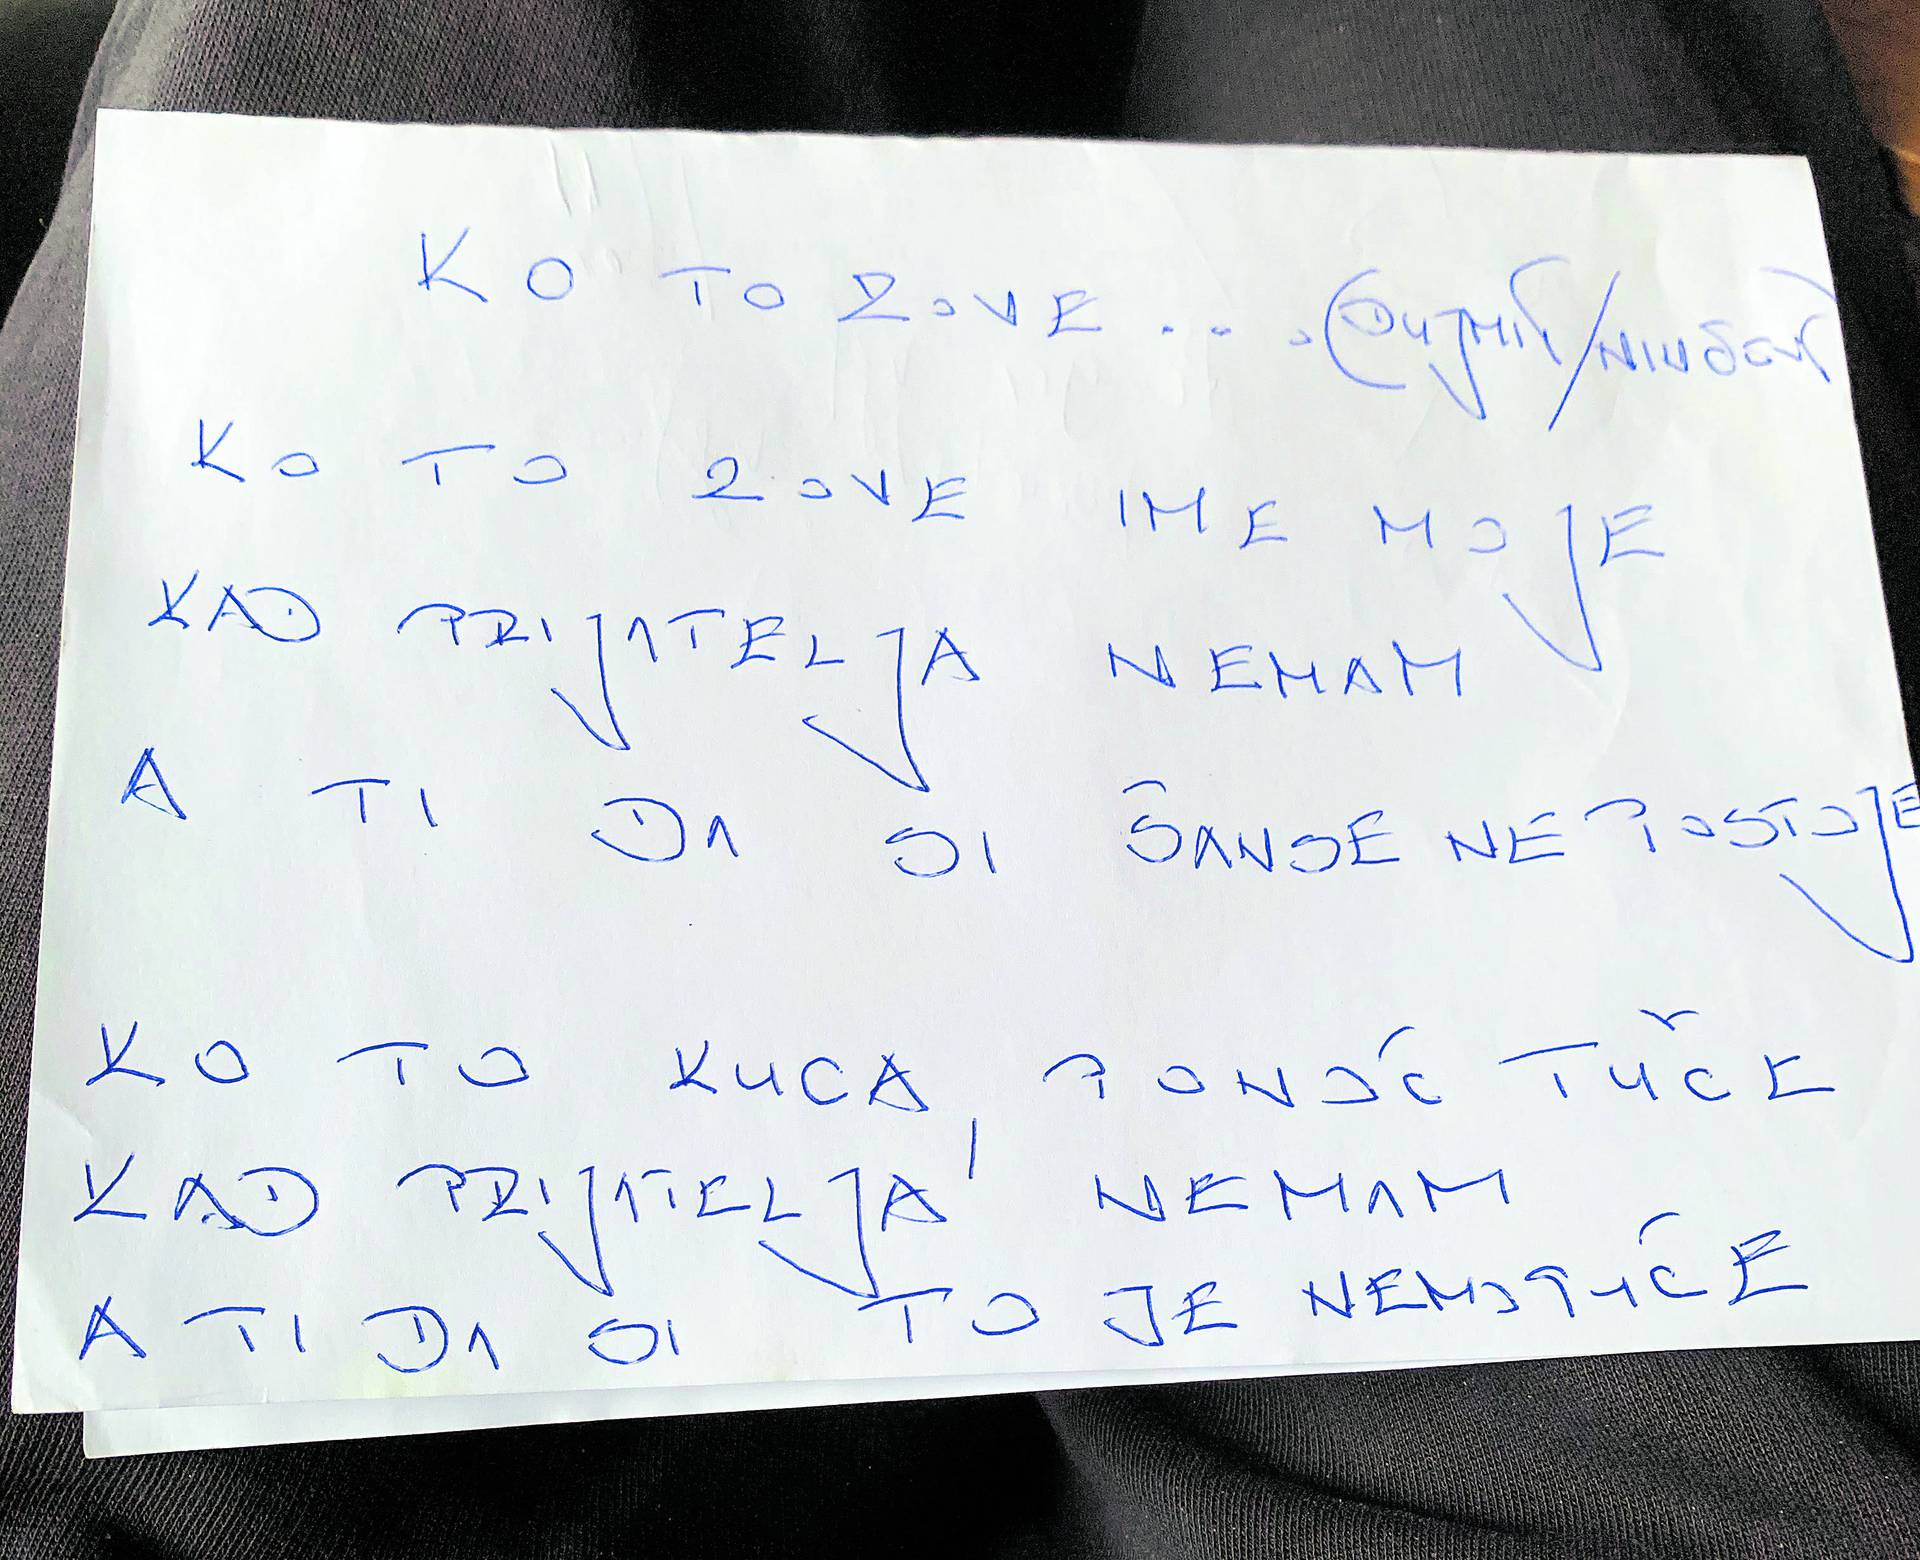 KO TO ZOVE ...
KO TO ZOVE IME MOJE
KAD PRIJATELJA NEMAM
A TI DA SI ŠANSE NE POSTOJE
KO TO KUCA, PONOĆ TUČE
KAD PRIJATELJA NEMAM
A TI DA SI TO JE NEMOGUĆE